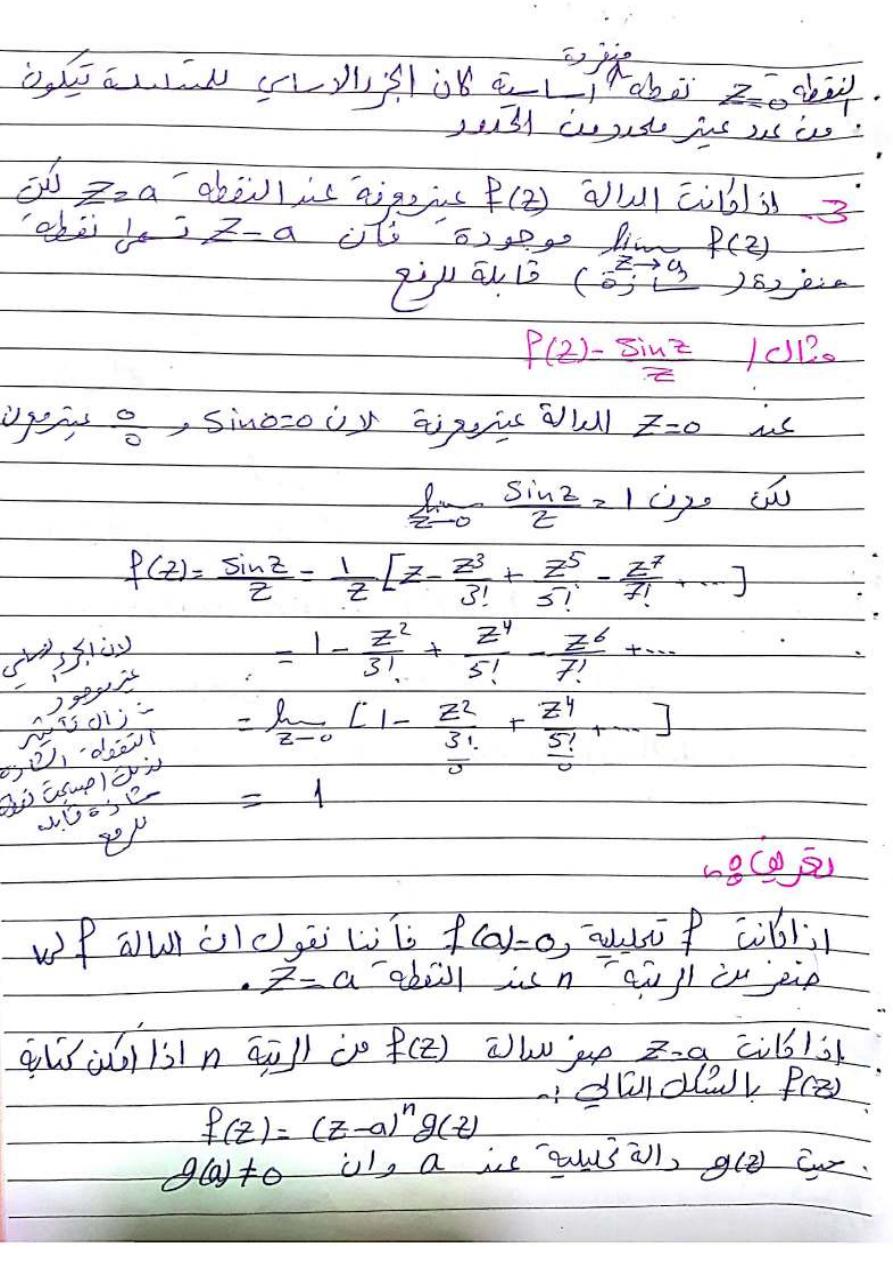 منفردة
النقطة z=0 نقطة أساسية كان الجزء الاساسي للمتسلسلة تيكون
من عدد غير محدود من الحدود
3. إذا كانت الدالة f(z) غير معرفة عند النقطة z=a لكن
lim z→a f(z) موجودة فأن z=a تسمى نقطة
منفردة (شاذة) قابلة للرفع
مثال / f(z) = sin z / z
عند z=0 الدالة غير معرفة لان sin0=0 و 0/0 غير معرف
لكن lim z→0 sin z / z = 1
f(z) = sin z / z = 1/z [z - z³/3! + z⁵/5! - z⁷/7! + ....]
= 1 - z²/3! + z⁴/5! - z⁶/7! + ....
= lim z→0 [1 - z²/3! + z⁴/5! + ....]
0 0
= 1
لان الجزء الاساسي
غير موجود
زال تأثير
النقطة الشاذة
لذلك اصبحت نقطة
شاذة قابلة
للرفع
تعريف :-
إذا كانت f تحليلية و f(a)=0 فأننا نقول ان الدالة f لها
صفر من الرتبة n عند النقطة z=a .
إذا كانت z=a صفر للدالة f(z) من الرتبة n اذا امكن كتابة
f(z) بالشكل التالي :-
f(z) = (z-a)ⁿ g(z)
حيث g(z) دالة تحليلية عند a وان g(a) ≠ 0